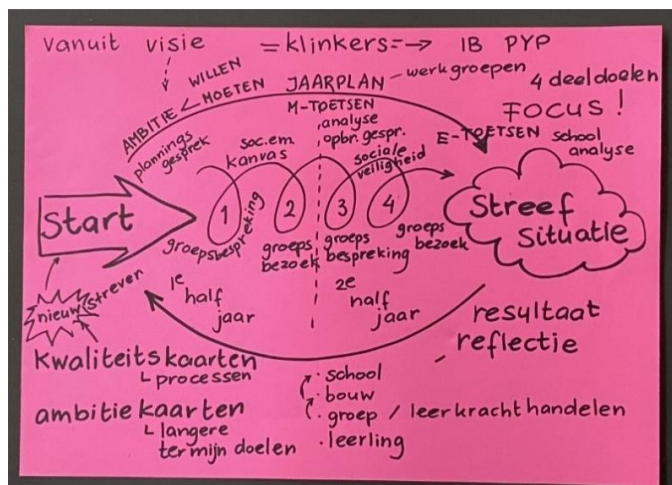 vanuit visie =klinkers=→ IB PYP
WILLEN
AMBITIE < MOETEN
JAARPLAN – werkgroepen
4 deeldoelen
FOCUS!
M-TOETSEN
analyse
opbr. gespr.
E-TOETSEN
school
analyse
plannings
gesprek
soc.em.
kanvas
sociale
veiligheid
Start
1
2
3
4
Streef
situatie
groepsbespreking
groeps
bezoek
groeps
bespreking
groeps
bezoek
nieuw streven
1e
half
jaar
2e
half
jaar
resultaat
reflectie
kwaliteitskaarten
processen
ambitiekaarten
langere
termijn doelen
· school
· bouw
· groep / leerkrachthandelen
· leerling